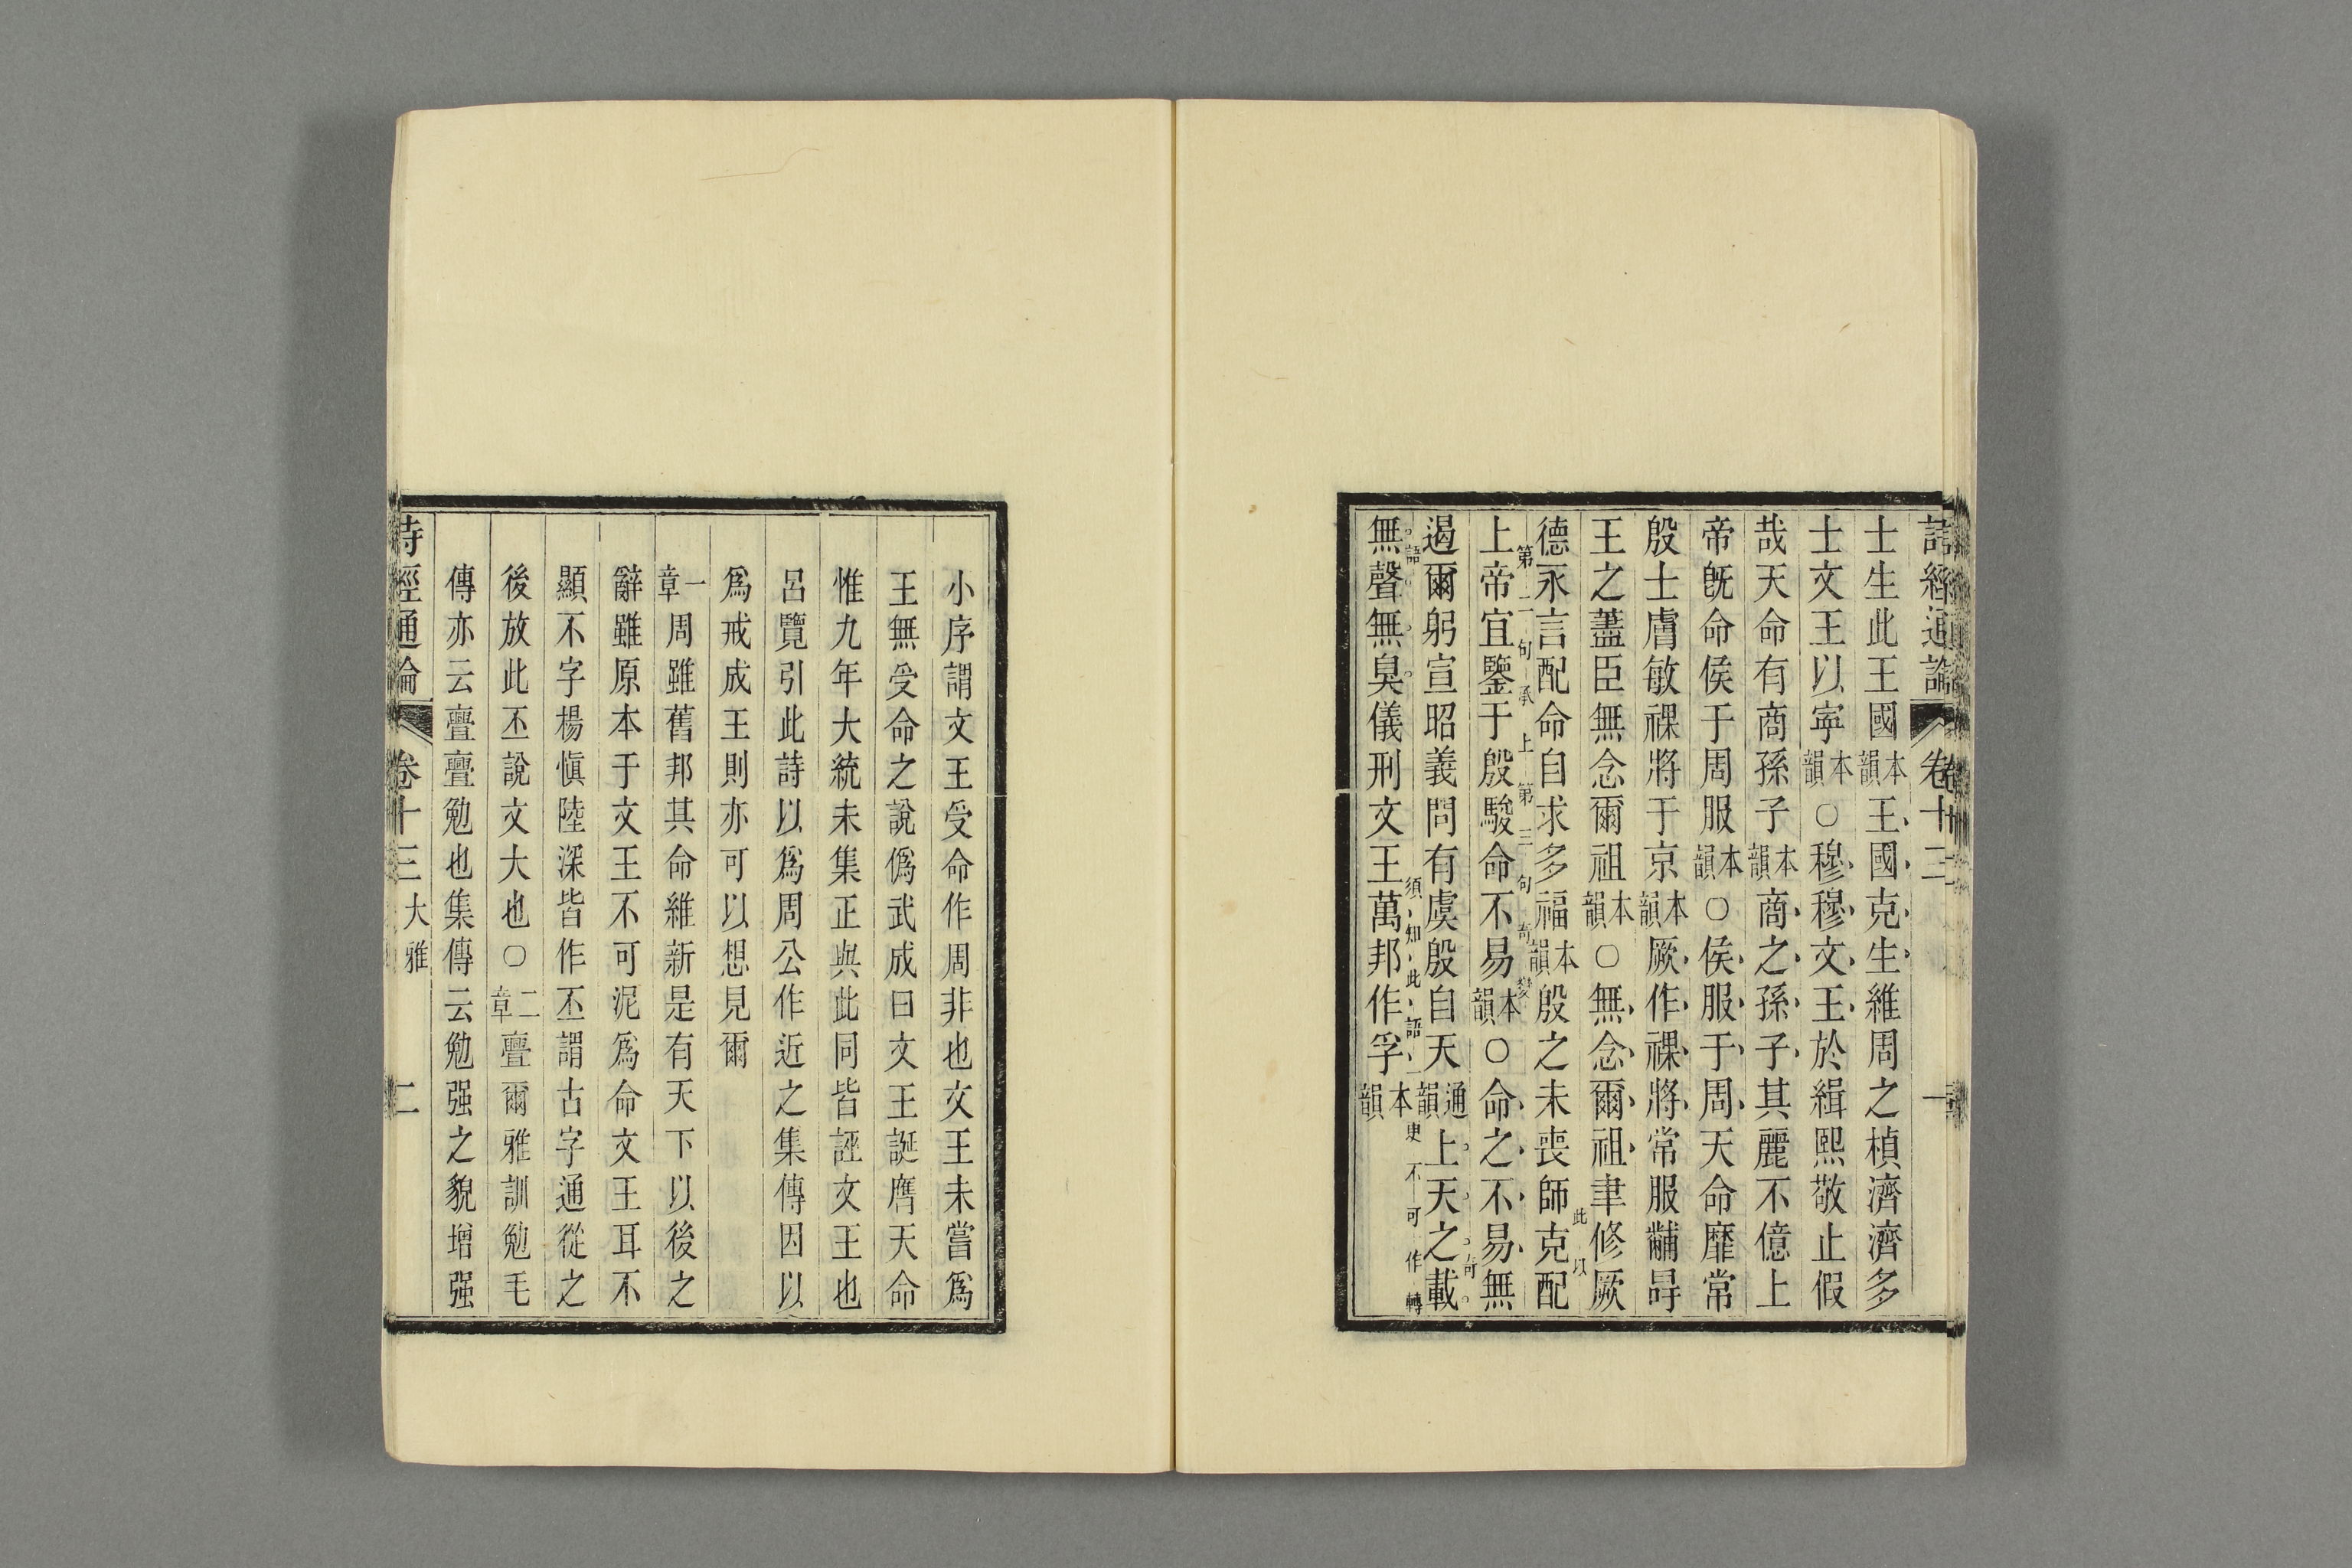 詩經通論 卷十三 一
士生此王國本韻王國克生維周之楨濟濟多
士文王以寧本韻○穆穆文王於緝熙敬止假
哉天命有商孫子本韻商之孫子其麗不億上
帝旣命侯于周服本韻○侯服于周天命靡常
殷士膚敏祼將于京本韻厥作祼將常服黼冔
王之藎臣無念爾祖本韻○無念爾祖聿修厥
德永言配命自求多福本韻殷之未喪師克配
此以
上帝宜鑒于殷駿命不易本韻○命之不易無
第二句承上第三句奇變
遏爾躬宣昭義問有虞殷自天通韻上天之載
奇
無聲無臭儀刑文王萬邦作孚本韻
語 須知此語更不可作轉
小序謂文王受命作周非也文王未嘗爲
王無受命之說僞武成曰文王誕膺天命
惟九年大統未集正與此同皆誣文王也
呂覽引此詩以爲周公作近之集傳因以
爲戒成王則亦可以想見爾
一章周雖舊邦其命維新是有天下以後之
辭雖原本于文王不可泥爲命文王耳不
顯不字楊愼陸深皆作丕謂古字通從之
後放此丕說文大也○二章亹爾雅訓勉毛
傳亦云亹亹勉也集傳云勉强之貌增强
詩經通論 卷十三 大雅 二